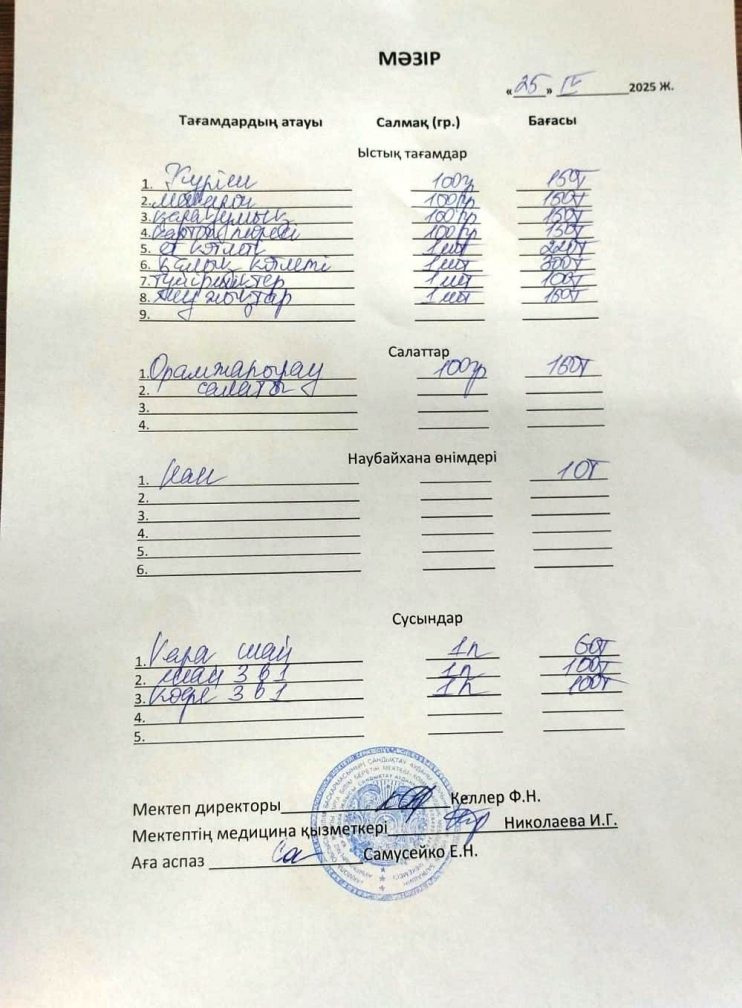 МӘЗІР
«25» IV 2025 Ж.
Тағамдардың атауы Салмақ (гр.) Бағасы
Ыстық тағамдар
1. Күріш 100гр 150т
2. макарон 100гр 150т
3. қарақұмық 100гр 150т
4. картоп пюресі 100гр 150т
5. ет котлеті 1шт
6. Балық котлеті 1шт 300т
7. түйіршіктер 1шт 100т
8. 1шт 150т
9.
Салаттар
1. Орамжапырақ 100гр 150т
2. салаты
3.
4.
Наубайхана өнімдері
1. Нан 10т
2.
3.
4.
5.
6.
Сусындар
1. Қара шай 1л 60т
2. шай 3 в 1 1л 100т
3. кофе 3 в 1 1л 100т
4.
5.
Мектеп директоры Келлер Ф.Н.
Мектептің медицина қызметкері Николаева И.Г.
Аға аспаз Самусейко Е.Н.